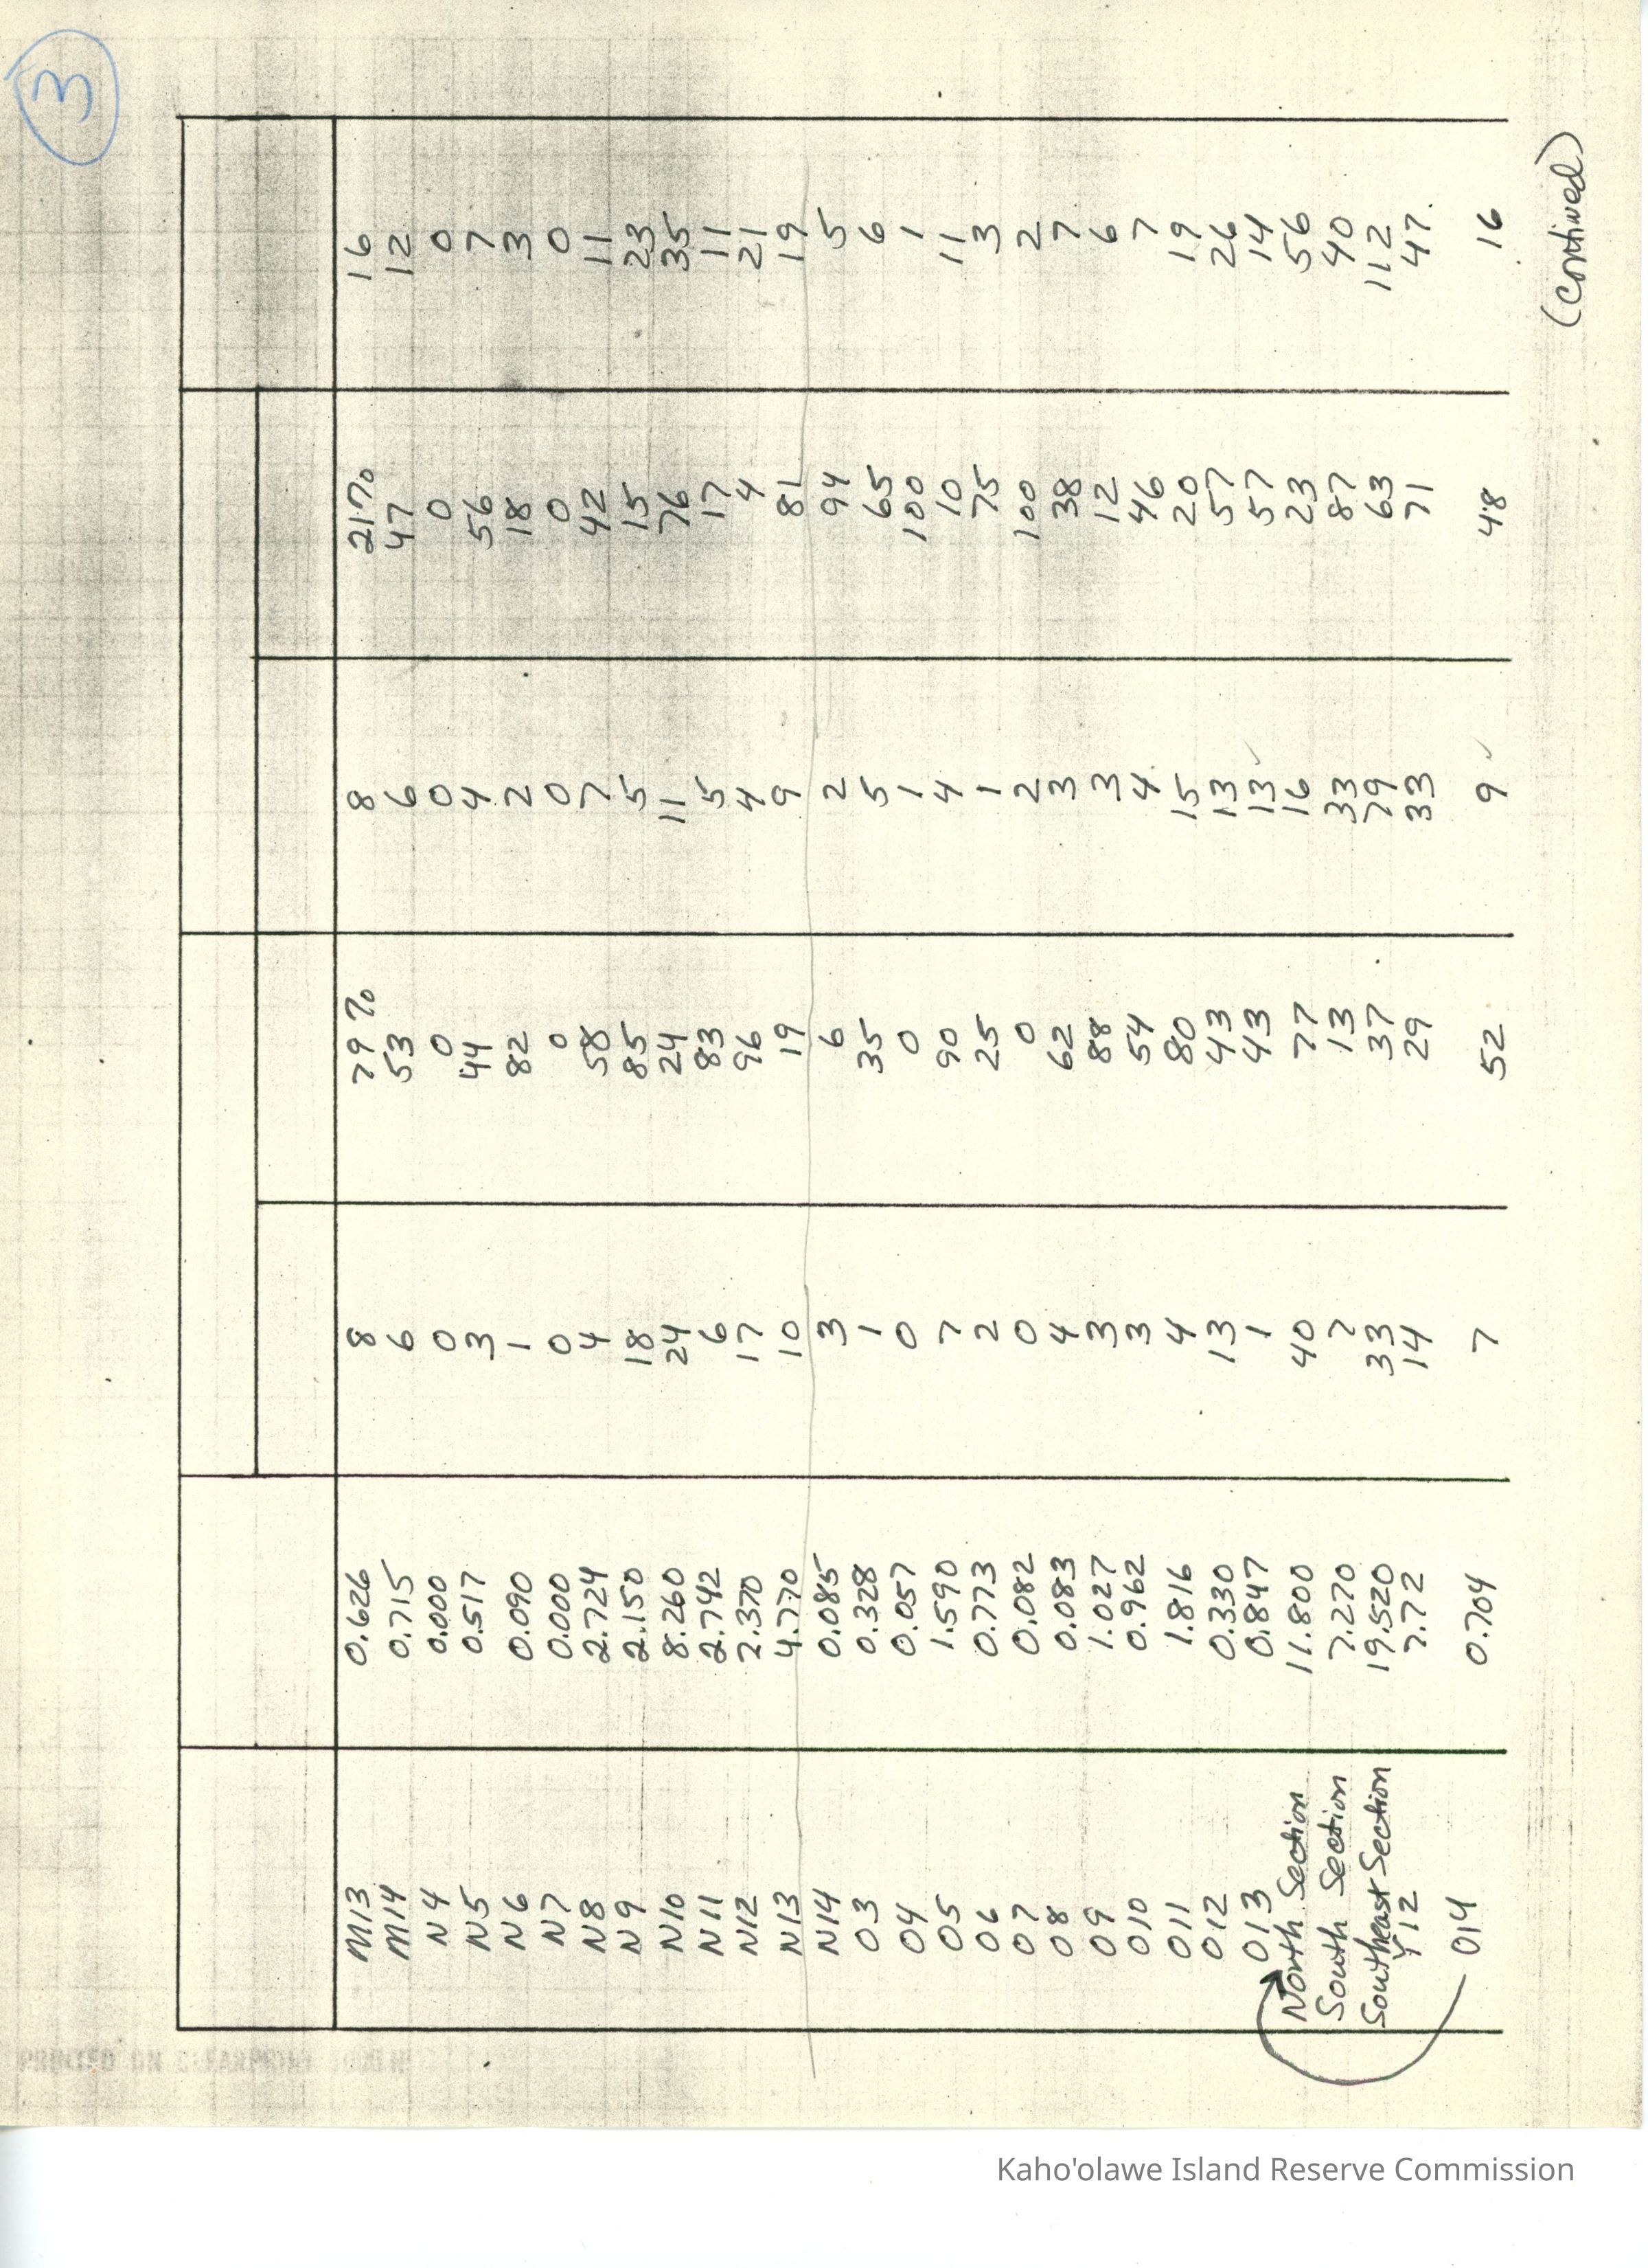 3
M13 0.626 8 79% 8 21% 16
M14 0.715 6 53 6 47 12
N4 0.000 0 0 0 0 0
N5 0.517 3 44 4 56 7
N6 0.090 1 82 2 18 3
N7 0.000 0 0 0 0 0
N8 2.724 4 58 7 42 11
N9 2.150 18 85 5 15 23
N10 8.260 24 24 11 76 35
N11 2.742 6 83 5 17 11
N12 2.370 17 96 4 4 21
N13 4.770 10 19 9 81 19
N14 0.085 3 6 2 94 5
O3 0.328 1 35 5 65 6
O4 0.057 0 0 1 100 1
O5 1.590 7 90 4 10 11
O6 0.773 2 25 1 75 3
O7 0.082 0 0 2 100 2
O8 0.083 4 62 3 38 7
O9 1.027 3 88 3 12 6
O10 0.962 3 54 4 46 7
O11 1.816 4 80 15 20 19
O12 0.330 13 43 13 57 26
O13 0.847 1 43 13 57 14
North Section 11.800 40 77 16 23 56
South Section 7.270 7 13 33 87 40
Southeast Section 19.520 33 37 79 63 112
Y12 7.772 14 29 33 71 47
O14 0.704 7 52 9 48 16
(continued)
PRINTED ON CLEARPRINT
Kaho'olawe Island Reserve Commission